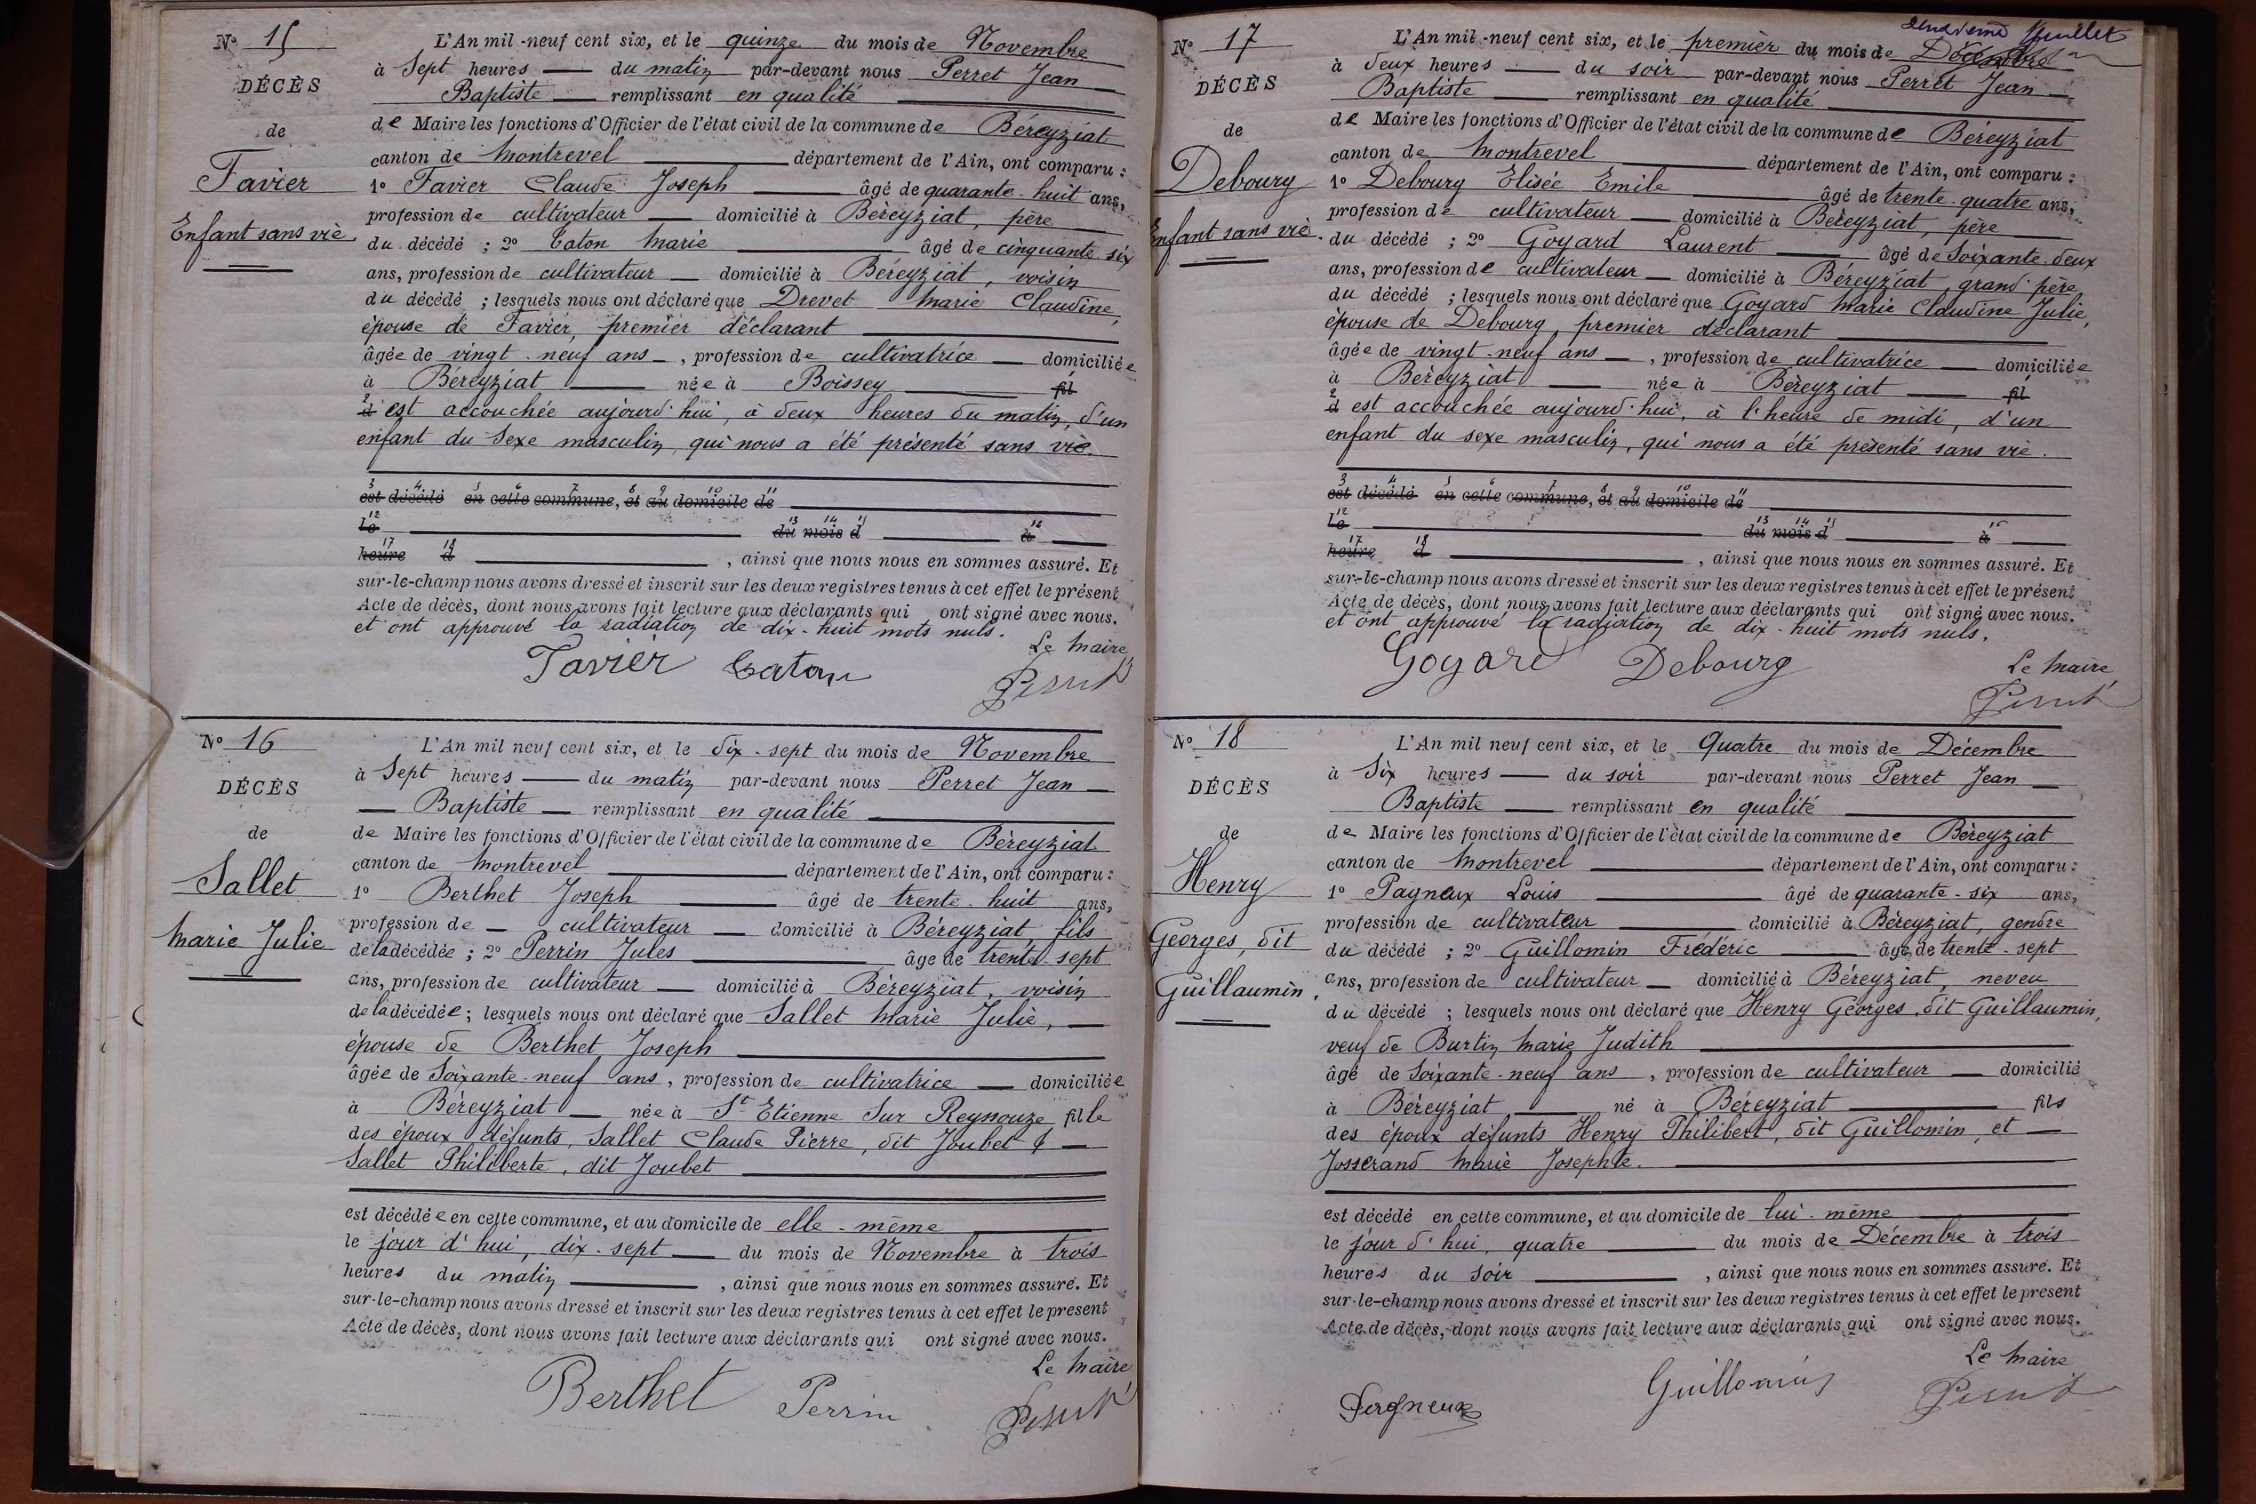 N° 15
DÉCÈS
de
Favier
Enfant sans vie
L'An mil-neuf cent six, et le quinze du mois de Novembre
à Sept heures du matin par-devant nous Perret Jean
Baptiste remplissant en qualité
de Maire les fonctions d'Officier de l'état civil de la commune de Béreyziat
canton de Montrevel département de l'Ain, ont comparu :
1° Favier Claude Joseph âgé de quarante-huit ans,
profession de cultivateur domicilié à Béreyziat, père
du décédé ; 2° Caton Marie âgé de cinquante six
ans, profession de cultivateur domicilié à Béreyziat, voisin
du décédé ; lesquels nous ont déclaré que Drevet Marie Claudine,
épouse de Favier, premier déclarant
âgée de vingt-neuf ans, profession de cultivatrice domiciliée
à Béreyziat née à Boissey fil
d est accouchée aujourd'hui, à deux heures du matin, d'un
enfant du sexe masculin, qui nous a été présenté sans vie.
est décédé en cette commune, et au domicile de
le du mois d à
heure d , ainsi que nous nous en sommes assuré. Et
sur-le-champ nous avons dressé et inscrit sur les deux registres tenus à cet effet le présent
Acte de décès, dont nous avons fait lecture aux déclarants qui ont signé avec nous.
et ont approuvé la radiation de dix-huit mots nuls.
Le Maire
Favier Caton Perret
N° 16
DÉCÈS
de
Sallet
Marie Julie
L'An mil neuf cent six, et le dix-sept du mois de Novembre
à Sept heures du matin par-devant nous Perret Jean
Baptiste remplissant en qualité
de Maire les fonctions d'Officier de l'état civil de la commune de Béreyziat
canton de Montrevel département de l'Ain, ont comparu :
1° Berthet Joseph âgé de trente-huit ans,
profession de cultivateur domicilié à Béreyziat fils
de la décédée ; 2° Perrin Jules âgé de trente sept
ans, profession de cultivateur domicilié à Béreyziat, voisin
de la décédée ; lesquels nous ont déclaré que Sallet Marie Julie,
épouse de Berthet Joseph
âgée de Soixante-neuf ans, profession de cultivatrice domiciliée
à Béreyziat née à St Etienne Sur Reyssouze fille
des époux défunts, Sallet Claude Pierre, dit Joubet &
Sallet Philiberte, dit Joubet
est décédée en cette commune, et au domicile de elle-même
le jour d'hui, dix-sept du mois de Novembre à trois
heures du matin , ainsi que nous nous en sommes assuré. Et
sur-le-champ nous avons dressé et inscrit sur les deux registres tenus à cet effet le présent
Acte de décès, dont nous avons fait lecture aux déclarants qui ont signé avec nous.
Le Maire
Berthet Perrin Perret
N° 17
DÉCÈS
de
Debourg
Enfant sans vie
deuxième feuillet
L'An mil-neuf cent six, et le premier du mois de Décembre
à deux heures du soir par-devant nous Perret Jean
Baptiste remplissant en qualité
de Maire les fonctions d'Officier de l'état civil de la commune de Béreyziat
canton de Montrevel département de l'Ain, ont comparu :
1° Debourg Elisée Emile âgé de trente-quatre ans,
profession de cultivateur domicilié à Béreyziat, père
du décédé ; 2° Goyard Laurent âgé de Soixante-deux
ans, profession de cultivateur domicilié à Béreyziat, grand-père
du décédé ; lesquels nous ont déclaré que Goyard Marie Claudine Julie,
épouse de Debourg, premier déclarant
âgée de vingt-neuf ans, profession de cultivatrice domiciliée
à Béreyziat née à Béreyziat fil
d est accouchée aujourd'hui, à l'heure de midi, d'un
enfant du sexe masculin, qui nous a été présenté sans vie.
est décédé en cette commune, et au domicile de
le du mois d à
heure d , ainsi que nous nous en sommes assuré. Et
sur-le-champ nous avons dressé et inscrit sur les deux registres tenus à cet effet le présent
Acte de décès, dont nous avons fait lecture aux déclarants qui ont signé avec nous.
et ont approuvé la radiation de dix-huit mots nuls.
Goyard Debourg Le Maire
Perret
N° 18
DÉCÈS
de
Henry
Georges, dit
Guillaumin
L'An mil neuf cent six, et le Quatre du mois de Décembre
à Six heures du soir par-devant nous Perret Jean
Baptiste remplissant en qualité
de Maire les fonctions d'Officier de l'état civil de la commune de Béreyziat
canton de Montrevel département de l'Ain, ont comparu :
1° Pagneux Louis âgé de quarante-six ans,
profession de cultivateur domicilié à Béreyziat, gendre
du décédé ; 2° Guillomin Frédéric âgé de trente-sept
ans, profession de cultivateur domicilié à Béreyziat, neveu
du décédé ; lesquels nous ont déclaré que Henry Georges, dit Guillaumin,
veuf de Burtin Marie Judith
âgé de Soixante-neuf ans, profession de cultivateur domicilié
à Béreyziat né à Béreyziat fils
des époux défunts Henry Philibert, dit Guillomin, et
Josserand Marie Josephte.
est décédé en cette commune, et au domicile de lui-même
le jour d'hui, quatre du mois de Décembre à trois
heures du soir , ainsi que nous nous en sommes assuré. Et
sur-le-champ nous avons dressé et inscrit sur les deux registres tenus à cet effet le présent
Acte de décès, dont nous avons fait lecture aux déclarants qui ont signé avec nous.
Le Maire
Pagneux Guillomin Perret